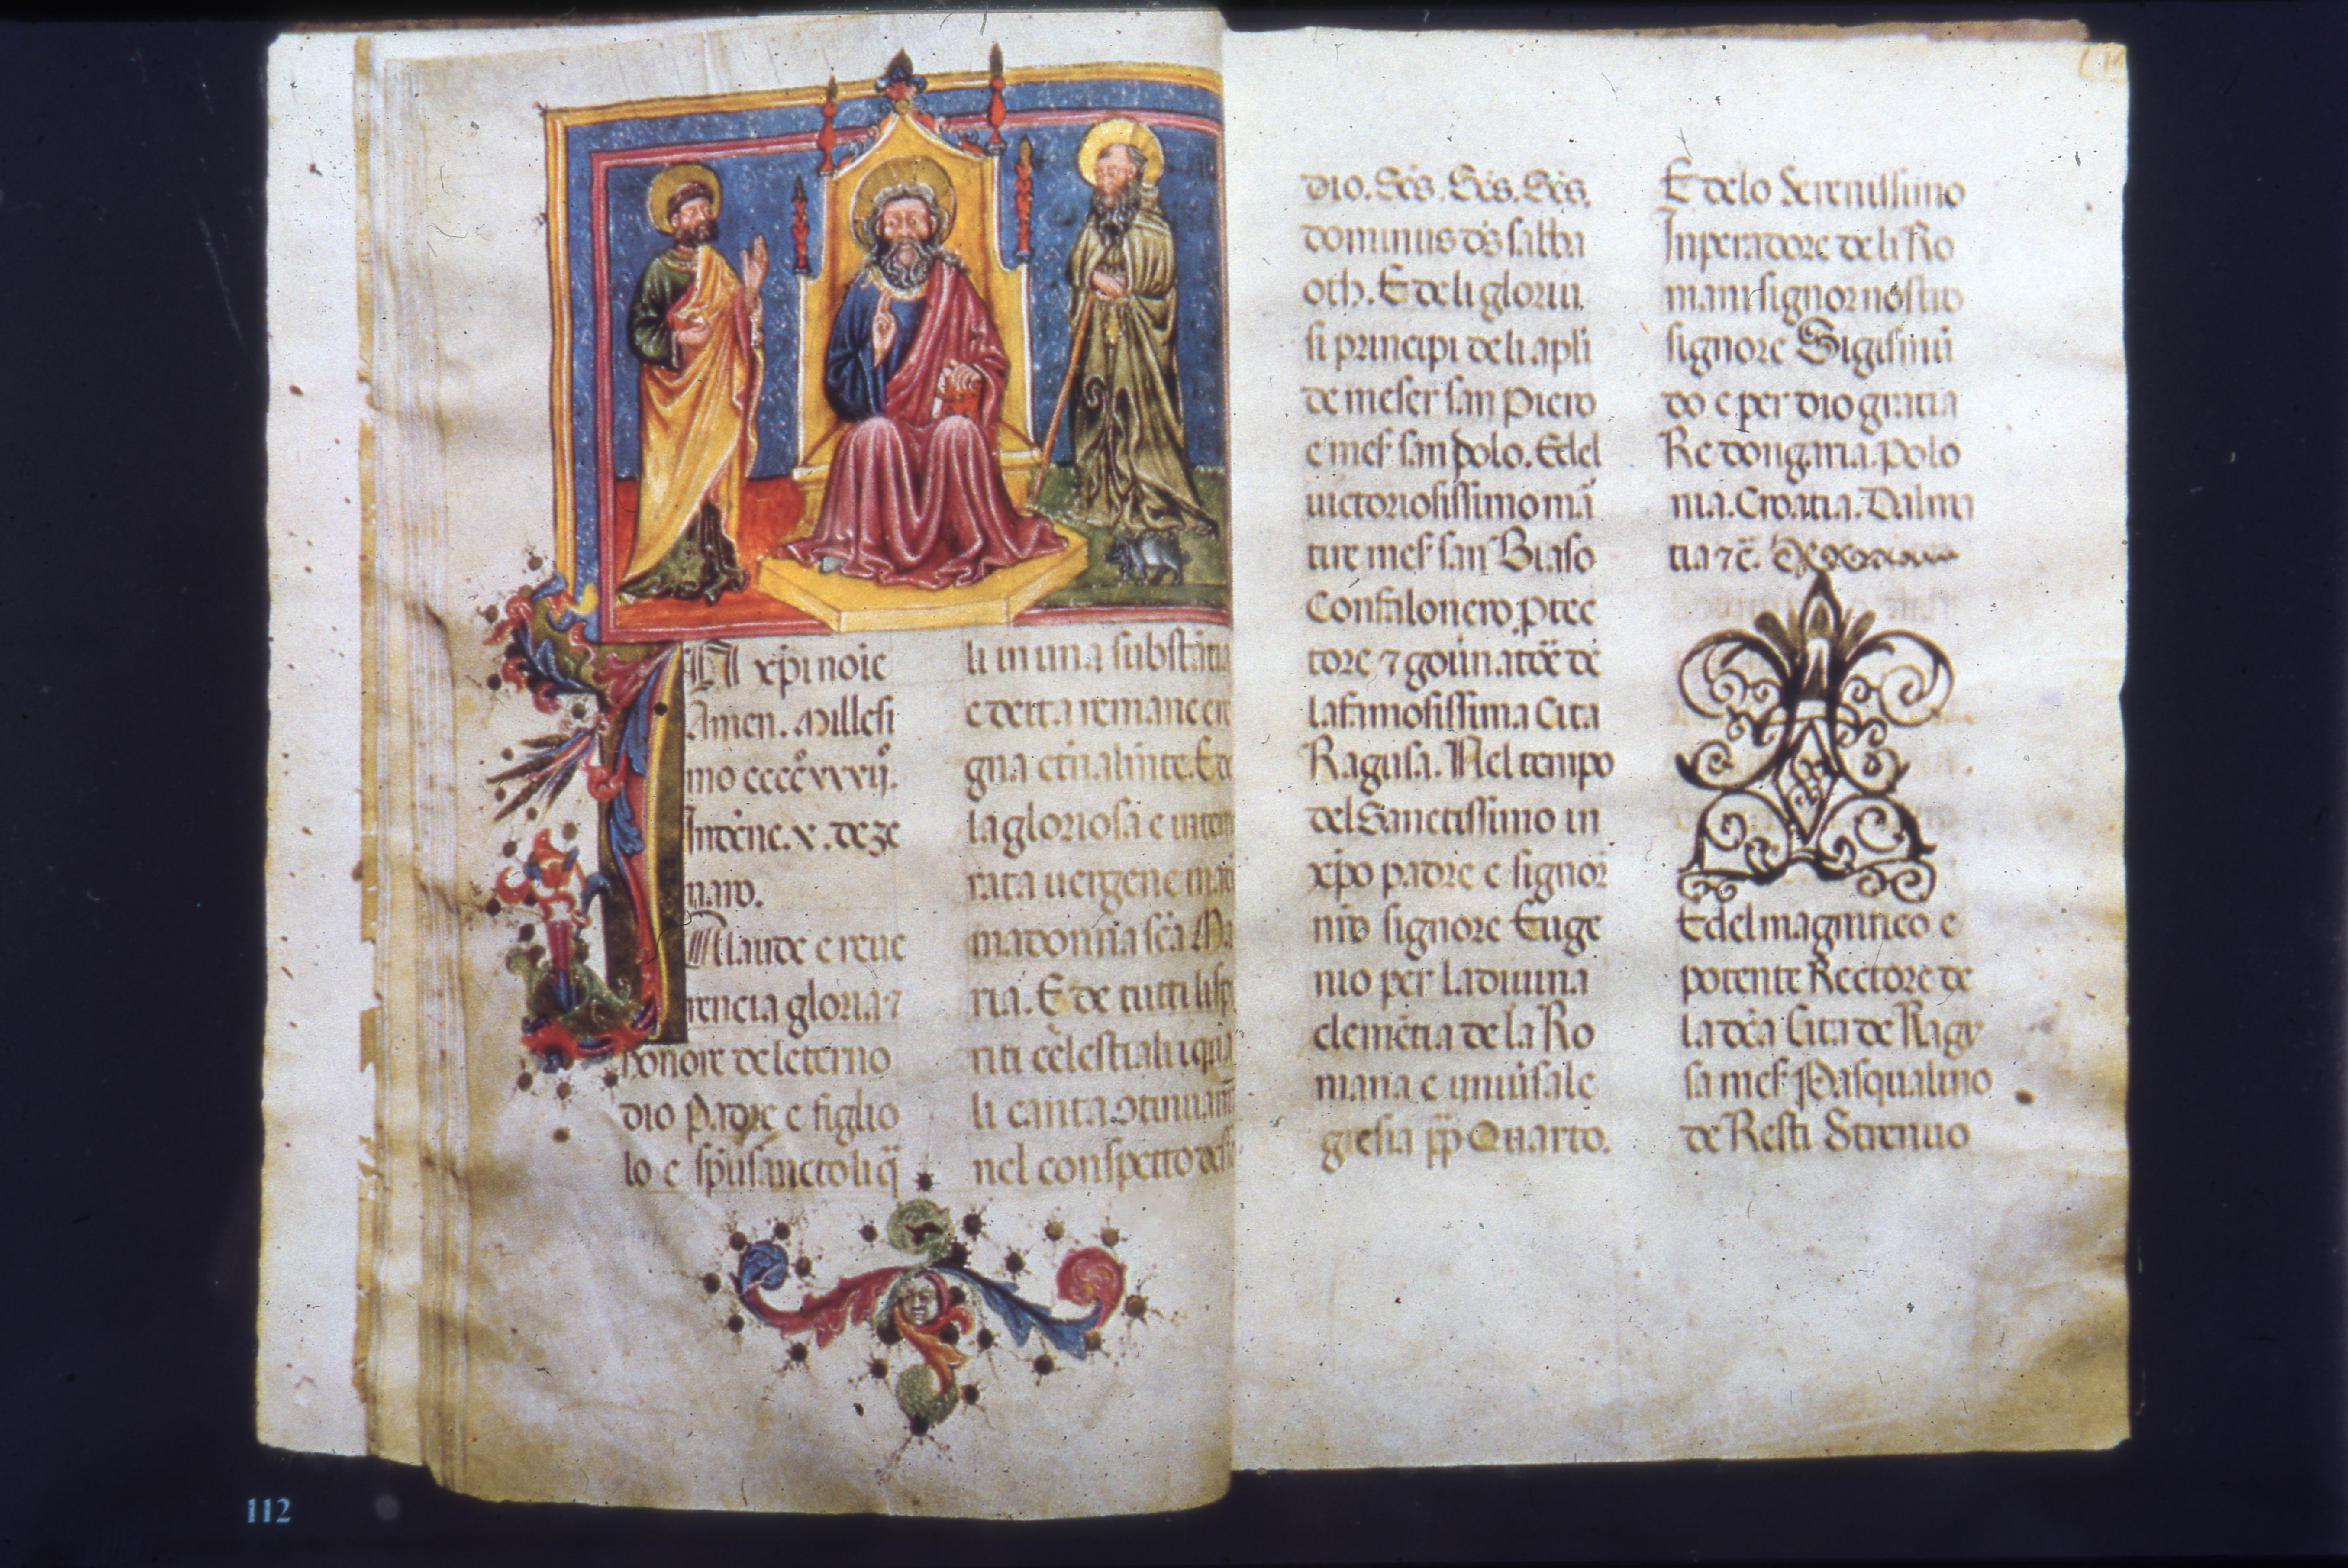 IN xp̄i noīe
Amen. Millesi
mo ccccºxxxijº.
Indcē̄ne. x. de ze
naro.
A laude e reue
rencia gloria ⁊
honore de leterno
dio Padre e figlio
lo e sp̄usancto li q̄
li in una substātia
e deita
gna et̄nalmēte. E de
la gloriosa e intem
rata uergene mad
madonna sc̄a Ma
ria. E de tutti li spi
riti celestiali i quia
li canta ↄtinuam̄
nel conspetto
dio. Sc̄s. Sc̄s. Sc̄s.
dominus d̄s sabba
oth. E de li glorio
si principi de li apl̄i
de meser san Piero
e mes̄ san polo. E del
uictoriosissimo mā
tire mes̄ san Biaso
Confalonero. ꝓtec
tore ⁊ gou̅natoē de
la famosissima Cita
Ragusa. Nel tempo
del Sanctissimo in
xp̄o padre e signor
nr̄o signore Euge
nio per la diuina
clemētia de la Ro
mana e uniūsale
giesia pp̄ Quarto.
E delo Serenissimo
Inperadore de li Ro
mani signor nostro
signore Sigismū
do e per dio gratia
Re dongaria. Polo
nia. Croatia. Dalma
tia ⁊c̄.
E del magnifico e
potente Rectore de
la dc̄a Cita de Ragu
sa mes̄ Pasqualino
de Resti Strenuo
112